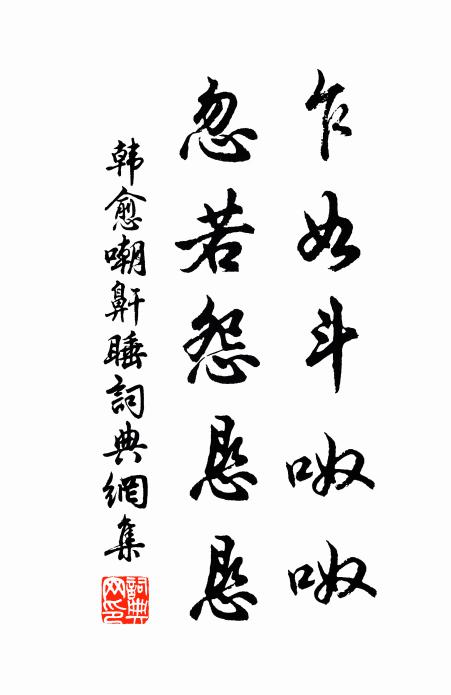 乍如斗呶呶
忽若怨恳恳
韓愈嘲鼾睡詞典網集
詞典网印